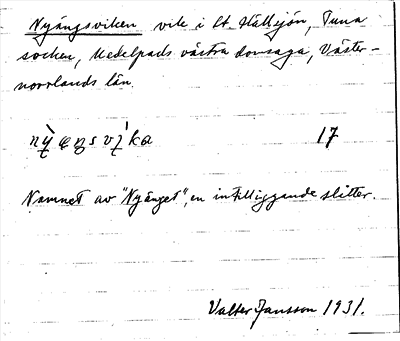 Nyängsviken vik i St. Hällsjön, Tuna
socken, Medelpads västra domsaga, Väster-
norrlands län.
17
Namnet av "Nyänget", en intilliggande slåtter.
Valter Jansson 1931.